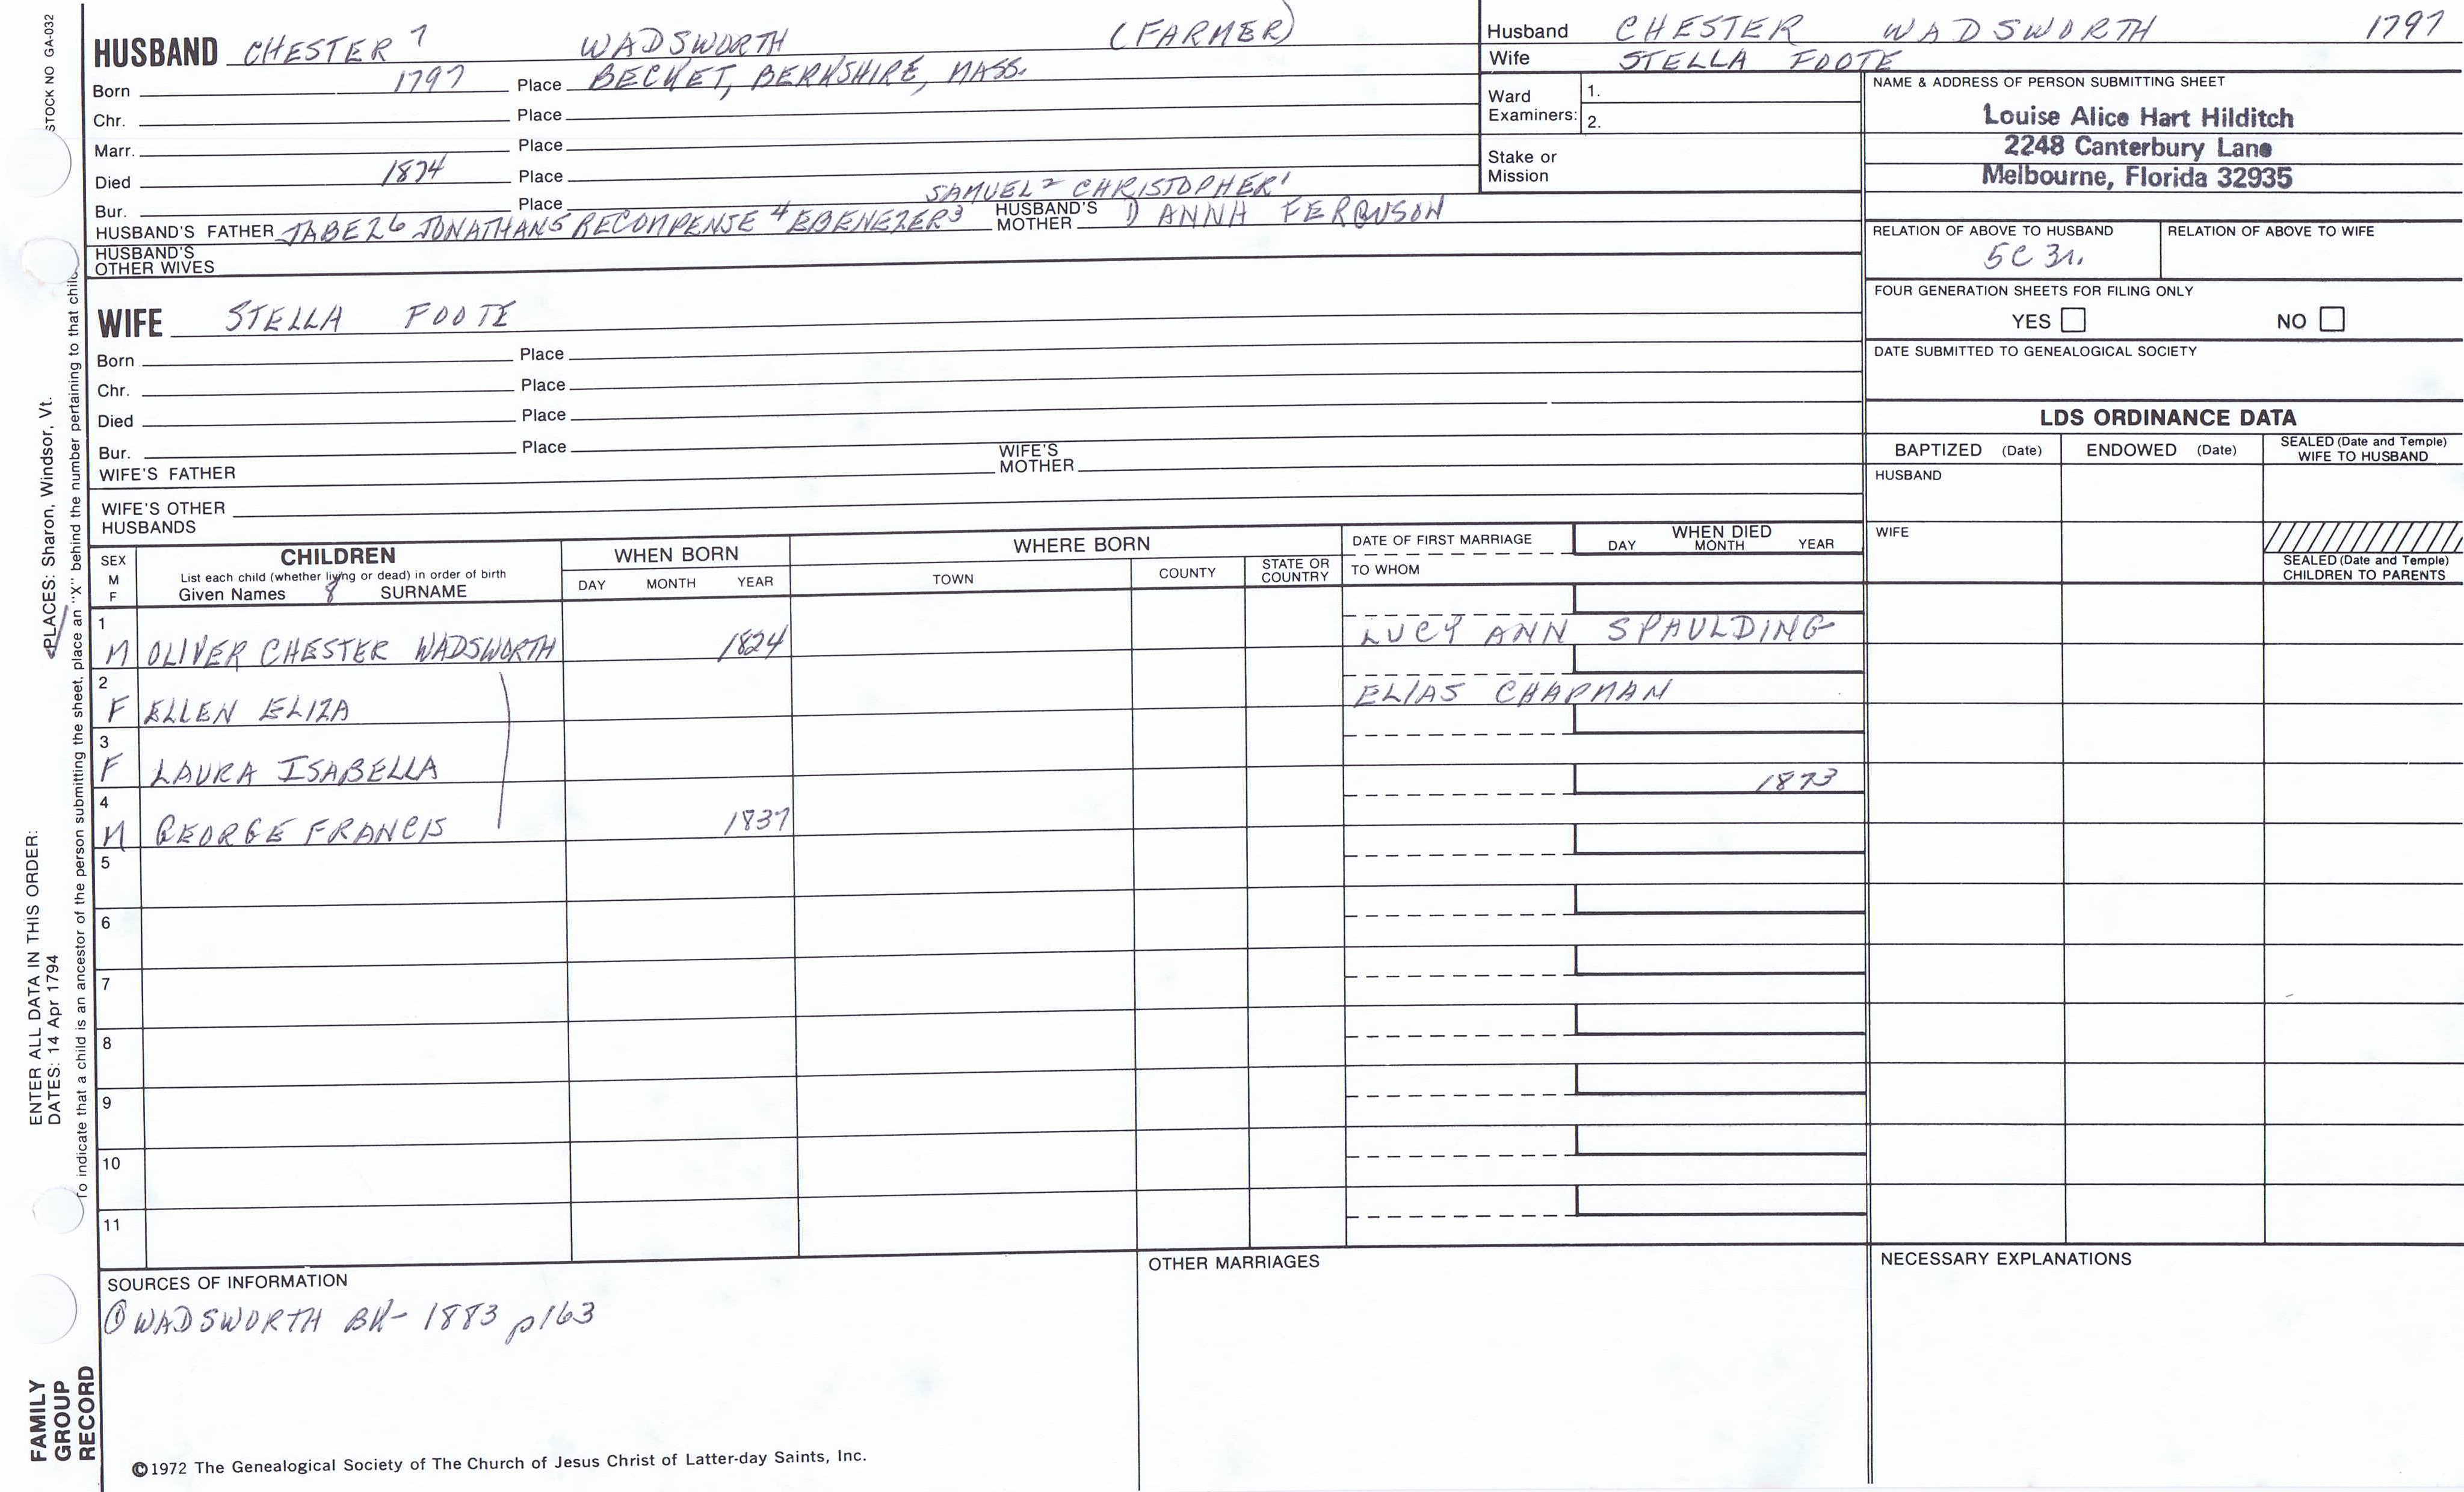 STOCK NO GA-032
HUSBAND CHESTER 7 WADSWORTH (FARMER)
Born 1797 Place BECKET, BERKSHIRE, MASS.
Chr. Place
Marr. Place
Died 1874 Place
SAMUEL 2 CHRISTOPHER 1
Bur. Place
HUSBAND'S FATHER JABEZ 6 JONATHAN 5 RECOMPENSE 4 EBENEZER 3 HUSBAND'S MOTHER DANNA FERGUSON
HUSBAND'S OTHER WIVES
Husband CHESTER WADSWORTH 1797
Wife STELLA FOOTE
Ward Examiners: 1.
2.
Stake or Mission
NAME & ADDRESS OF PERSON SUBMITTING SHEET
Louise Alice Hart Hilditch
2248 Canterbury Lane
Melbourne, Florida 32935
RELATION OF ABOVE TO HUSBAND RELATION OF ABOVE TO WIFE
5C 3r.
FOUR GENERATION SHEETS FOR FILING ONLY
YES NO
DATE SUBMITTED TO GENEALOGICAL SOCIETY
WIFE STELLA FOOTE
Born Place
Chr. Place
Died Place
Bur. Place
WIFE'S FATHER WIFE'S MOTHER
WIFE'S OTHER HUSBANDS
LDS ORDINANCE DATA
BAPTIZED (Date) ENDOWED (Date) SEALED (Date and Temple) WIFE TO HUSBAND
HUSBAND
WIFE
SEALED (Date and Temple) CHILDREN TO PARENTS
SEX M F
CHILDREN
List each child (whether living or dead) in order of birth
Given Names 8 SURNAME
WHEN BORN
DAY MONTH YEAR
WHERE BORN
TOWN COUNTY STATE OR COUNTRY
DATE OF FIRST MARRIAGE
TO WHOM
WHEN DIED
DAY MONTH YEAR
1 M OLIVER CHESTER WADSWORTH 1824 LUCY ANN SPAULDING
2 F ELLEN ELIZA ELIAS CHAPMAN
3 F LAURA ISABELLA
4 M GEORGE FRANCIS 1837 1873
5
6
7
8
9
10
11
SOURCES OF INFORMATION
① WADSWORTH BK- 1883 p163
OTHER MARRIAGES
NECESSARY EXPLANATIONS
©1972 The Genealogical Society of The Church of Jesus Christ of Latter-day Saints, Inc.
ENTER ALL DATA IN THIS ORDER:
DATES: 14 Apr 1794
PLACES: Sharon, Windsor, Vt.
To indicate that a child is an ancestor of the person submitting the sheet, place an "X" behind the number pertaining to that child.
FAMILY
GROUP
RECORD